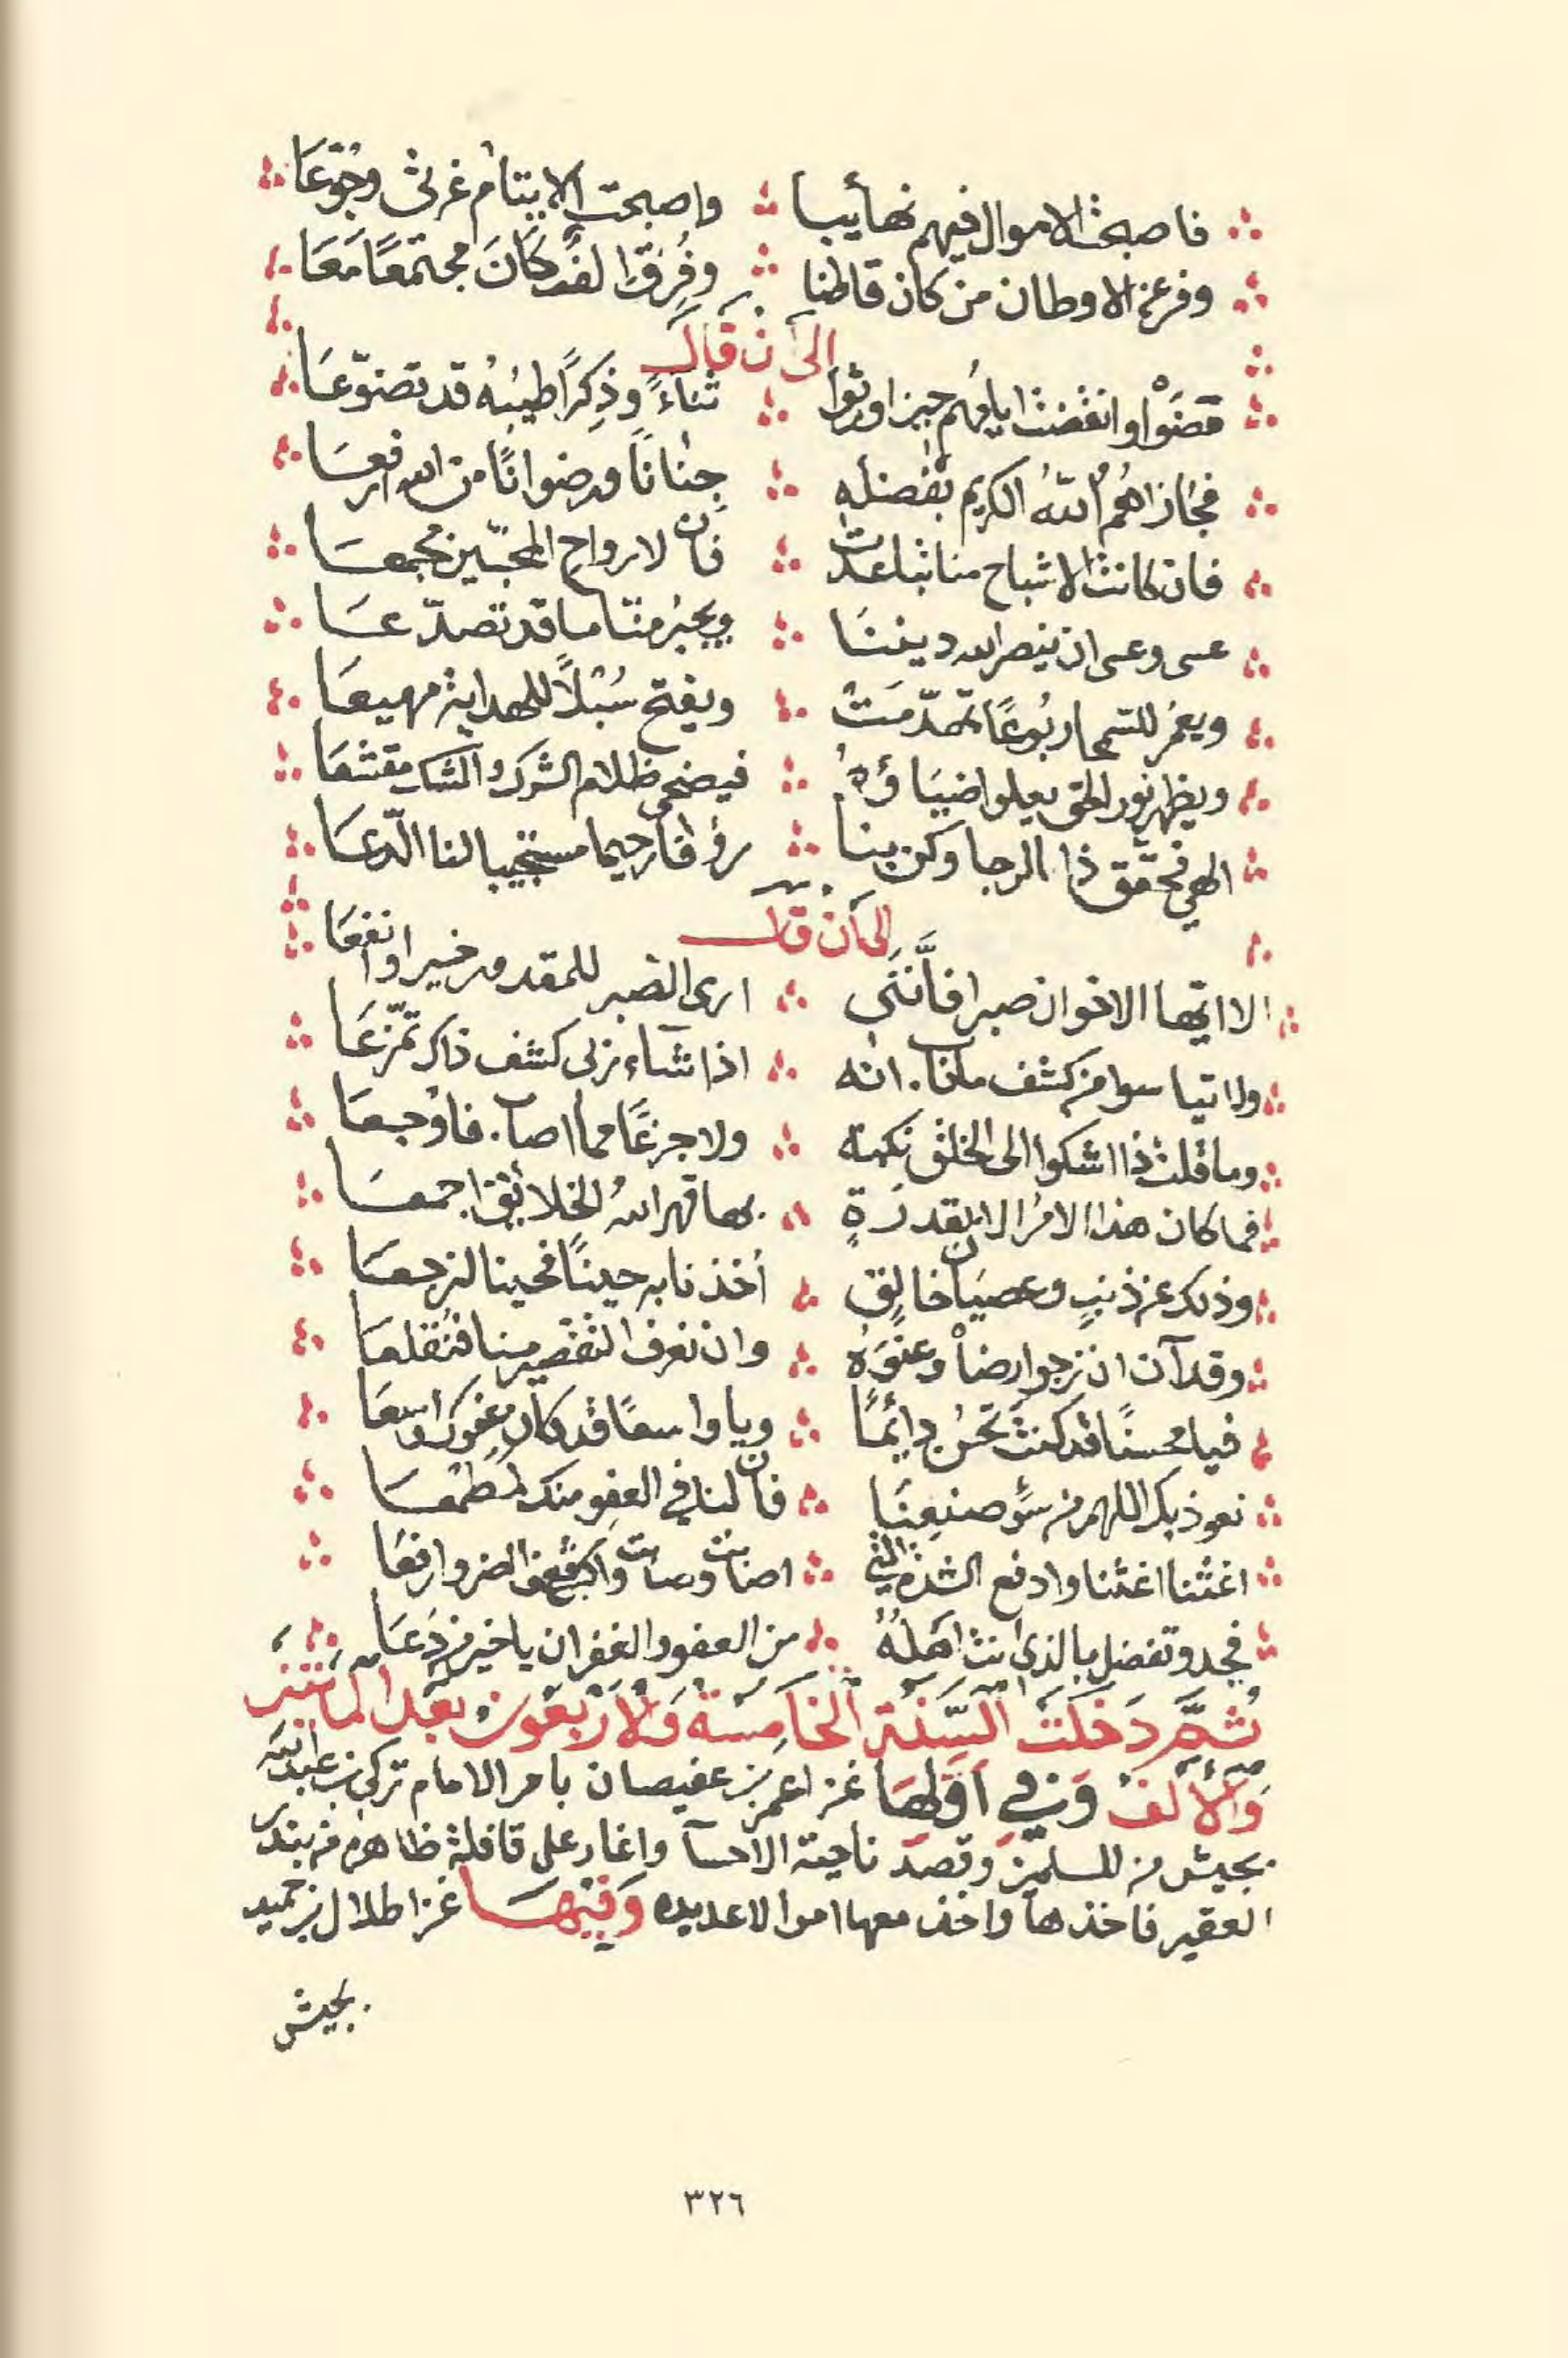 فاصبحت الاموال فيهم نهائبا واصبحت الايتام غرثى وجوّعَا
وفر عن الاوطان من كان قاطنا وفُرِّق الف كَانَ مجتمعًا مَعَا
الى ان قال
قضَوْا وانقضت ايامهم حين اورثوا ثناءً وذِكرًا طيبُهُ قد تضوّعَا
فجازاهُمُ اللهُ الكريم بفضلهِ جنانًا ورضوانًا من الله ارفعَا
فان كانت الاشباح منا تباعدت فان لارواحِ المحبّين مجمعَا
عسى وعسى ان ينصر الله ديننَا ويجبُر منّا ما قد تصدّعَا
ويعمُر للسمحا ربُوعًا تهدّمَتْ ويفتح سُبْلاً للهداية مهيعَا
ويظهر نور الحق يعلوا ضيَاؤهُ فيضحى ظلام الشرك والشك مقشعَا
الهي فحقّق ذا الرجا وكن بنا رؤفا رحيما مستجيبا لنا الدّعَا
الى ان قال
الا ايّها الاخوان صبرا فأنَّنَى ارى الصبر للمقدور خيرا وانفعَا
ولا تيأسوا من كشف ما ناب انه اذا شاء ربى كشف ذاك تمزّعَا
وما قلت ذا اشكوا الى الخلق نكبة ولا جزعًا مما اصاب فاوْجعَا
فما كان هذا الامرُ الا بقدرَةٍ بها قهر اللهُ الخلائق اجمعَا
وذلك عن ذنبٍ وعصيَان خالقٍ أخذنا به حينًا فحينا لنرجعَا
وقد آن ان نرجوا رضاْ وعفوَهُ وان نعرف التقصير منا فنُقلعَا
فيا محسنًا قد كنت تحسُن دائمًا ويا واسعًا قد كان عفوك اسعَا
نعوذ بك اللهم من سوء صنيعنَا فان لنا في العفو منك لمطمعَا
اغثنا اغثنا وادفع الشدة التي اصابت وصابت واكشف الضر وارفعَا
فجد وتفضل بالذى انت اهلهُ من العفو والغفران يا خير من دَعَا
ثُمَّ دَخَلَت السَّنَة الخَامِسَة وَالارْبَعُون بَعْدَ المأَتَيْن
وَالأَلف وَفي أوّلهَا غزا عمر بن عفيصان بامر الامام تركي بن عبد الله
بجيش من المسلمين وقصد ناحية الاحسا واغار على قافلة ظاهره من بندر
العقير فاخذها واخذ معها اموالا عديده وَفيْهَا غزا طلال بن حميد
بجيش
٣٢٦